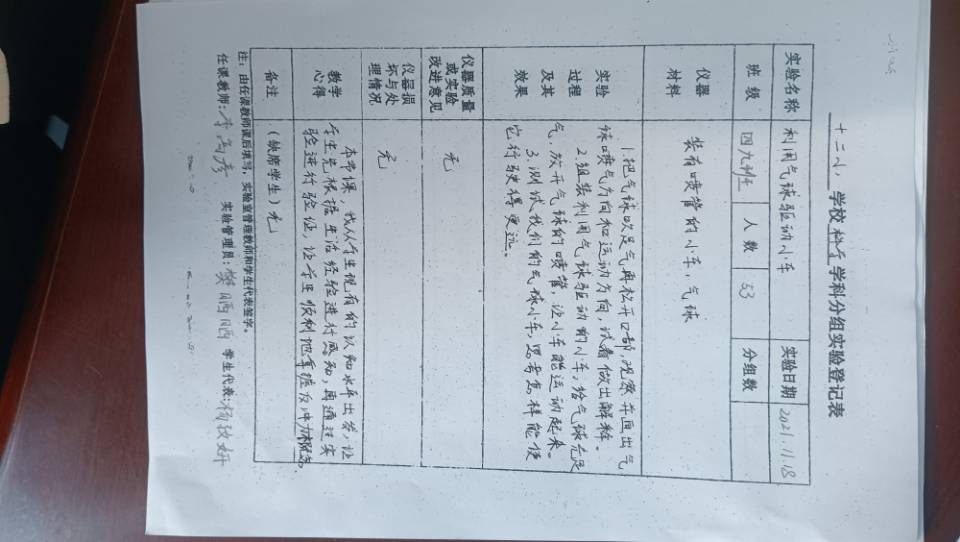 十二小 学校 科学 学科分组实验登记表
实验名称 利用气球驱动小车 实验日期 2021.11.18
班级 四九班 人数 53 分组数
仪器材料 装有喷管的小车、气球
实验过程及其效果
1.把气球吹足气再松开口部,观察并画出气
球喷气方向和运动方向,试着做出解释。
2.组装利用气球驱动的小车,给气球充足
气,放开气球的喷管,让小车能运动起来。
3.测试我们的气球小车,思考怎样能使
它行驶得更远。
仪器质量或实验改进意见 无
仪器损坏与处理情况 无
教学心得
本节课,我从学生现有的认知水平出发,让
学生先根据生活经验进行感知,再通过实
验进行验证,让学生顺利地掌握反冲力概念.
备注 (缺席学生)无
注:由任课教师课后填写,实验室管理教师和学生代表签字。
任课教师: 实验管理员:樊晒晒 学生代表:杨